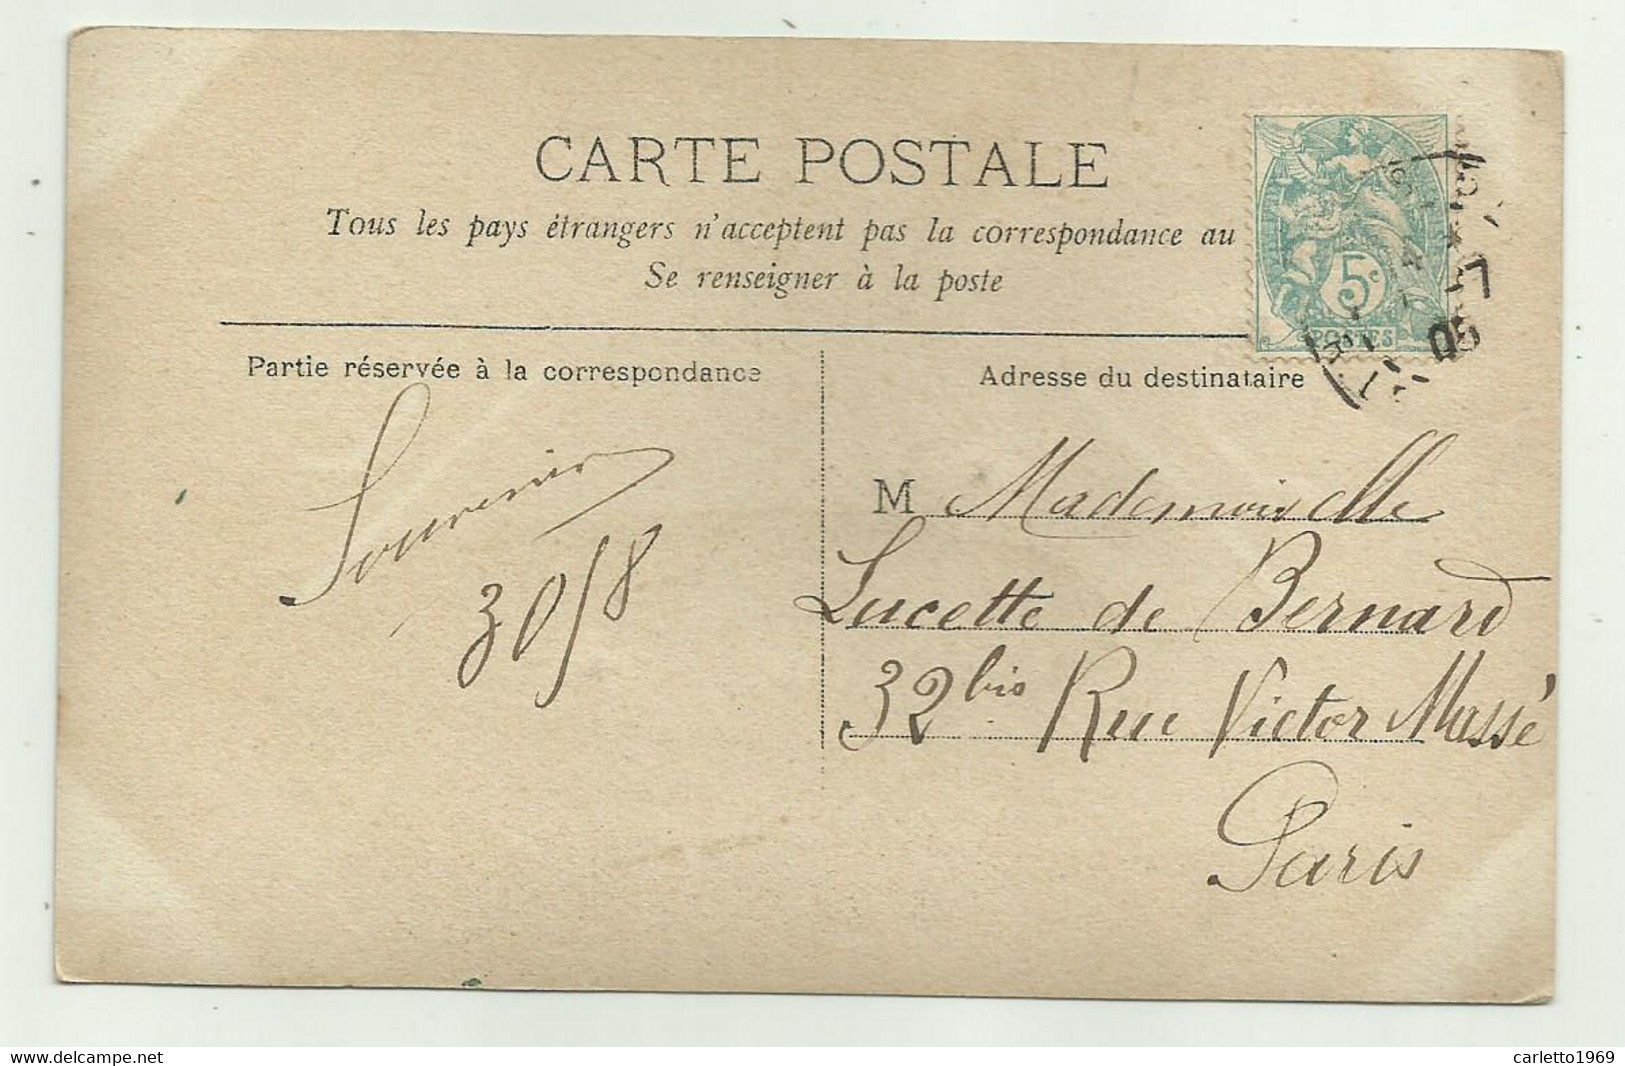 CARTE POSTALE
Tous les pays étrangers n'acceptent pas la correspondance au
Se renseigner à la poste
5c
POSTES
7
05
Partie réservée à la correspondance
Adresse du destinataire
Souvenir
30/8
M Mademoiselle
Lucette de Bernard
32 bis Rue Victor Massé
Paris
www.delcampe.net
carletto1969